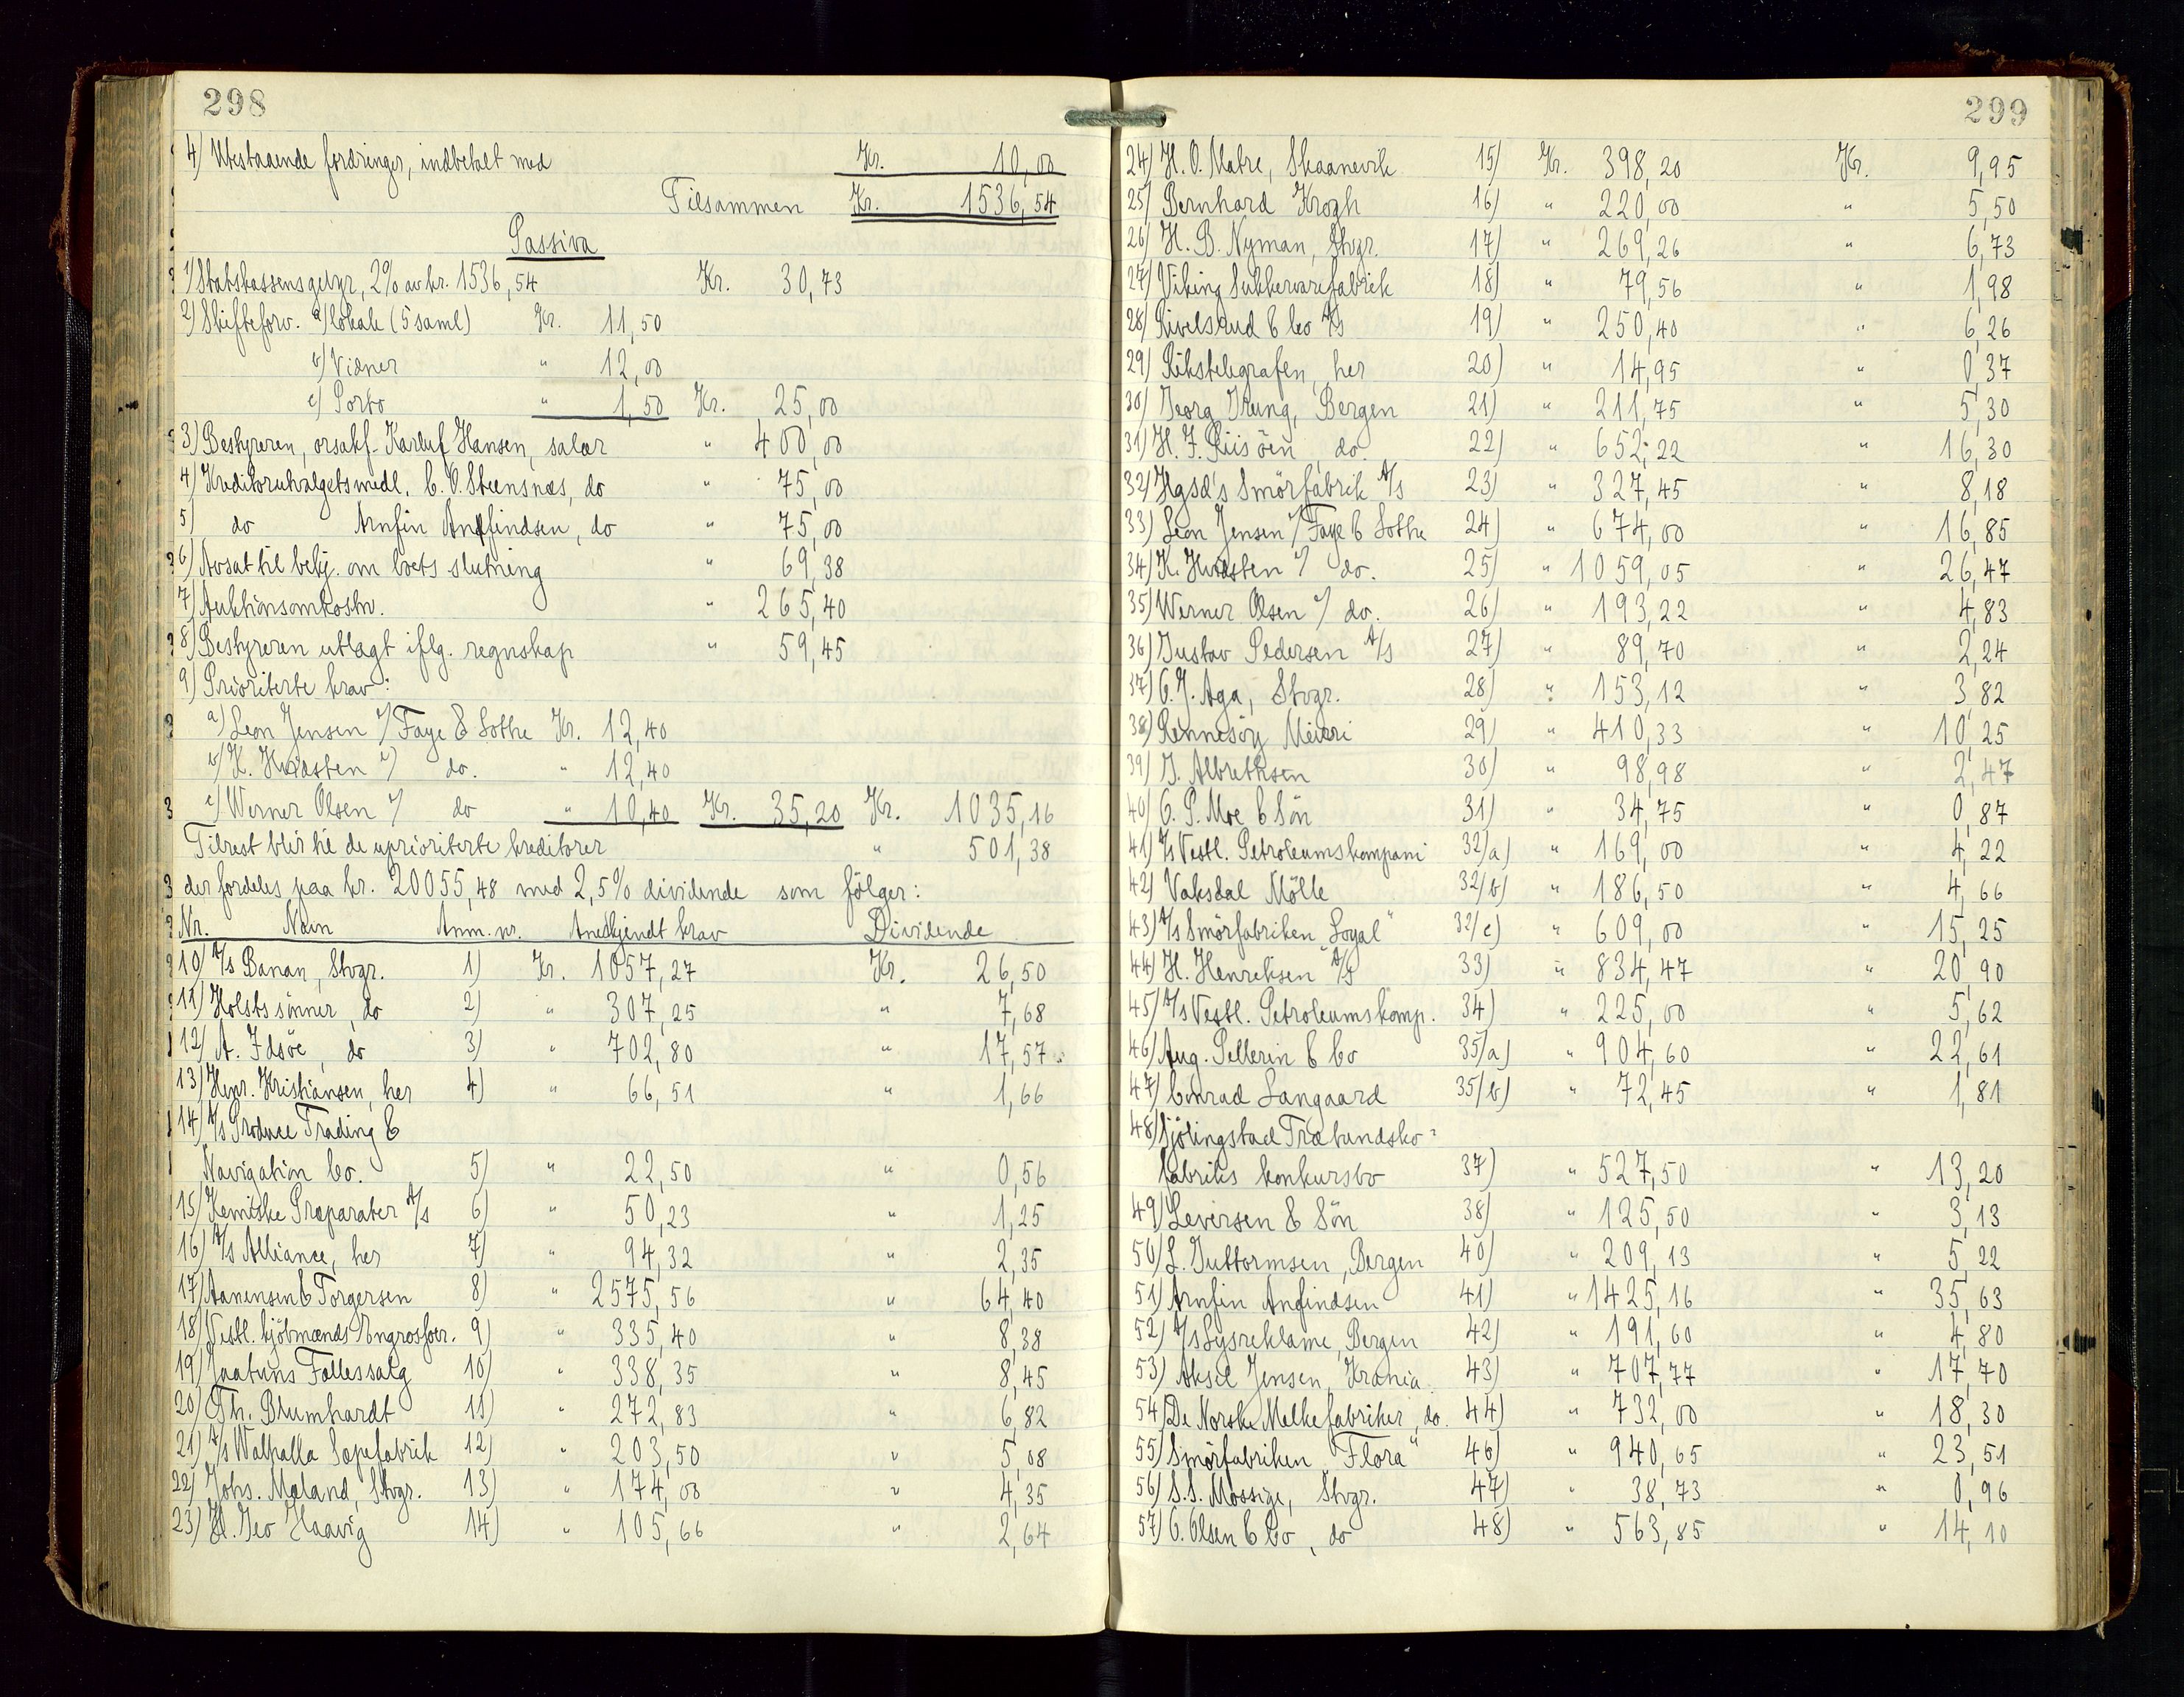 298
4) Utestaaende fordringer, indbetalt med Kr. 10,00
Tilsammen Kr. 1536,54
Passiva
1) Statskassens gebyr, 2% av kr. 1536,54 Kr. 30,73
2) Skifteforv. a) lokale (5 saml) Kr. 11,50
b) Vidner " 12,00
c) Porto " 1,50 Kr. 25,00
3) Bestyreren, orsakf. Karluf Hansen, salær " 400,00
4) Kreditorutvalgetsmedl. C. O. Steensnæs, do " 75,00
5) do Arnfin Anfindsen, do " 75,00
6) Avsat til bekj. om boets slutning " 69,38
7) Auktionsomkostn. " 265,40
8) Bestyreren utlagt iflg. regnskap " 59,45
9) Prioriterte krav:
a) Leon Jensen v/ Faye & Lothe Kr. 12,40
b) K. Hvidsten v/ do. " 12,40
c) Werner Olsen v/ do " 10,40 Kr. 35,20 Kr. 1035,16
Tilrest blir til de uprioriterte kreditorer " 501,38
der fordeles paa kr. 20055,48 med 2,5% dividende som fölger:
Nr. Navn Anm. nr. Anerkjendt krav Dividende
10) A/s Banan, Stvgr. 1) Kr. 1057,27 Kr. 26,50
11) Holsts sönner, do 2) " 307,25 " 7,68
12) A. Idsöe, do 3) " 702,80 " 17,57
13) Henr. Kristiansen, her 4) " 66,51 " 1,66
14) A/s Produce Trading &
Navigation Co. 5) " 22,50 " 0,56
15) Kemiske Præparater A/s 6) " 50,23 " 1,25
16) A/s Alliance, her 7) " 94,32 " 2,35
17) Aanensen & Torgersen 8) " 2575,56 " 64,40
18) Vestl. kjöbmænds Engrosfor. 9) " 335,40 " 8,38
19) Jaatuns Fællessalg 10) " 338,35 " 8,45
20) Th. Brumhardt 11) " 272,83 " 6,82
21) A/s Walhalla Sæpefabrik 12) " 203,50 " 5,08
22) Johs. Maland, Stvgr. 13) " 174,00 " 4,35
23) H. Geo Haavig 14) " 105,66 " 2,64
299
24) H. O. Matre, Skaanevik 15) Kr. 398,20 Kr. 9,95
25) Bernhard Krogh 16) " 220,00 " 5,50
26) H. B. Nyman, Stvgr. 17) " 269,26 " 6,73
27) Viking Sukkervarefabrik 18) " 79,56 " 1,98
28) Rivelsrud & Co A/s 19) " 250,40 " 6,26
29) Rikstelegrafen, her 20) " 14,95 " 0,37
30) Georg Grung, Bergen 21) " 211,75 " 5,30
31) H. J. Riisöen, do. 22) " 652,22 " 16,30
32) Hgsd's Smörfabrik A/s 23) " 327,45 " 8,18
33) Leon Jensen v/ Faye & Lothe 24) " 674,00 " 16,85
34) K. Hvidsten v/ do. 25) " 1059,05 " 26,47
35) Werner Olsen v/ do. 26) " 193,22 " 4,83
36) Gustav Pedersen A/s 27) " 89,70 " 2,24
37) O. J. Aga, Stvgr. 28) " 153,12 " 3,82
38) Rennesöy Meieri 29) " 410,33 " 10,25
39) J. Albrethsen 30) " 98,98 " 2,47
40) O. P. Moe & Sön 31) " 34,75 " 0,87
41) A/s Vestl. Petroleumskompani 32/a) " 169,00 " 4,22
42) Vaksdal Mölle 32/b) " 186,50 " 4,66
43) A/s Smörfabriken "Loyal" 32/c) " 609,00 " 15,25
44) H. Henriksen A/s 33) " 834,47 " 20,90
45) A/s Vestl. Petroleumskomp. 34) " 225,00 " 5,62
46) Aug. Pellerin & Co 35/a) " 904,60 " 22,61
47) Conrad Langaard 35/b) " 72,45 " 1,81
48) Sjölingstad Træbundsko-
fabriks konkursbo 37) " 527,50 " 13,20
49) Leversen & Sön 38) " 125,50 " 3,13
50) L. Guttormsen, Bergen 40) " 209,13 " 5,22
51) Arnfin Anfindsen 41) " 1425,16 " 35,63
52) A/s Lysreklame, Bergen 42) " 191,60 " 4,80
53) Aksel Jensen, Krania. 43) " 707,77 " 17,70
54) De Norske Melkefabriker, do. 44) " 732,00 " 18,30
55) Smörfabriken "Flora" 46) " 940,65 " 23,51
56) S. S. Mossige, Stvgr. 47) " 38,73 " 0,96
57) O. Olsen & Co, do 48) " 563,85 " 14,10